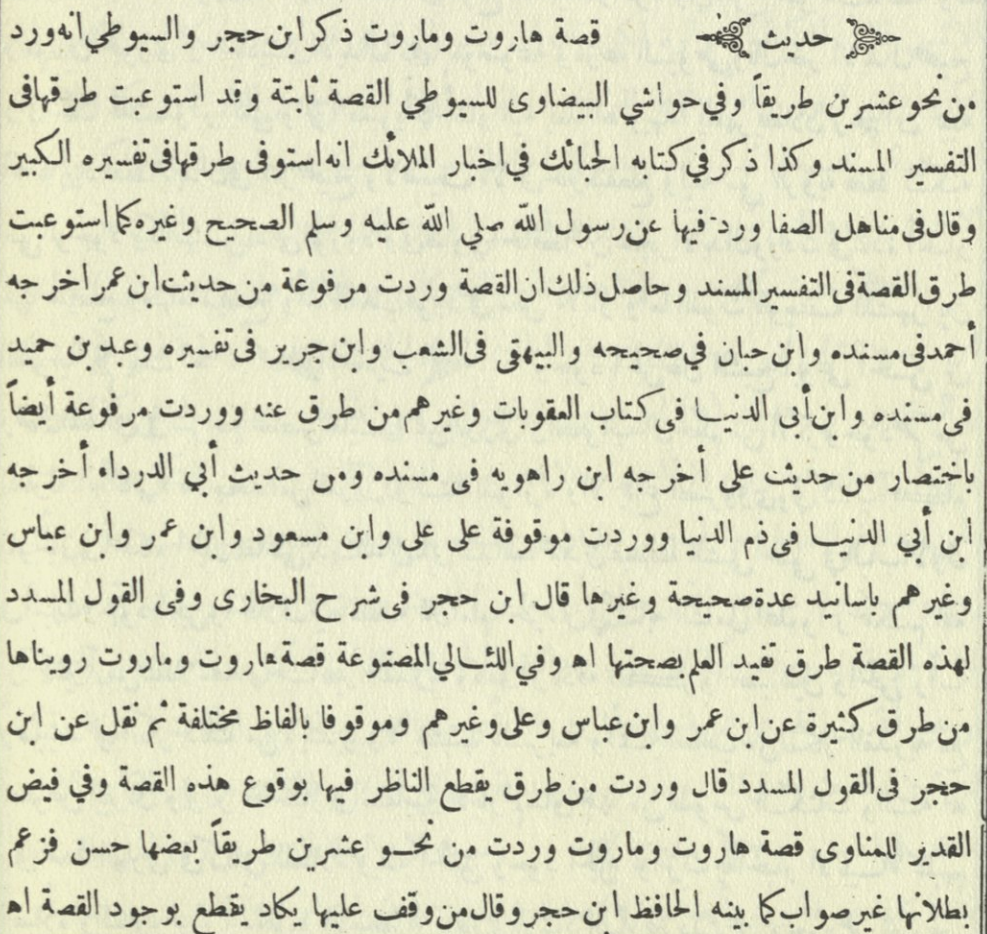 حديث قصة هاروت وماروت ذكر ابن حجر والسيوطي انه ورد
من نحو عشرين طريقاً وفي حواشي البيضاوى للسيوطي القصة ثابتة وقد استوعبت طرقها فى
التفسير المسند وكذا ذكر في كتابه الحبائك في اخبار الملائك انه استوفى طرقها فى تفسيره الكبير
وقال فى مناهل الصفا ورد فيها عن رسول الله صلي الله عليه وسلم الصحيح وغيره كما استوعبت
طرق القصة فى التفسير المسند وحاصل ذلك ان القصة وردت مرفوعة من حديث ابن عمر اخرجه
أحمد فى مسنده وابن حبان في صحيحه والبيهقى فى الشعب وابن جرير فى تفسيره وعبد بن حميد
فى مسنده وابن أبى الدنيا فى كتاب العقوبات وغيرهم من طرق عنه ووردت مرفوعة أيضاً
باختصار من حديث على أخرجه ابن راهويه فى مسنده ومن حديث أبي الدرداء أخرجه
ابن أبي الدنيا فى ذم الدنيا ووردت موقوفة على على وابن مسعود وابن عمر وابن عباس
وغيرهم باسانيد عدة صحيحة وغيرها قال ابن حجر فى شرح البخارى وفى القول المسدد
لهذه القصة طرق تفيد العلم بصحتها اه وفي اللئالي المصنوعة قصة هاروت وماروت رويناها
من طرق كثيرة عن ابن عمر وابن عباس وعلى وغيرهم وموقوفا بالفاظ مختلفة ثم نقل عن ابن
حجر فى القول المسدد قال وردت من طرق يقطع الناظر فيها بوقوع هذه القصة وفي فيض
القدير للمناوى قصة هاروت وماروت وردت من نحو عشرين طريقاً بعضها حسن فزعم
بطلانها غير صواب كما بينه الحافظ ابن حجر وقال من وقف عليها يكاد يقطع بوجود القصة اه